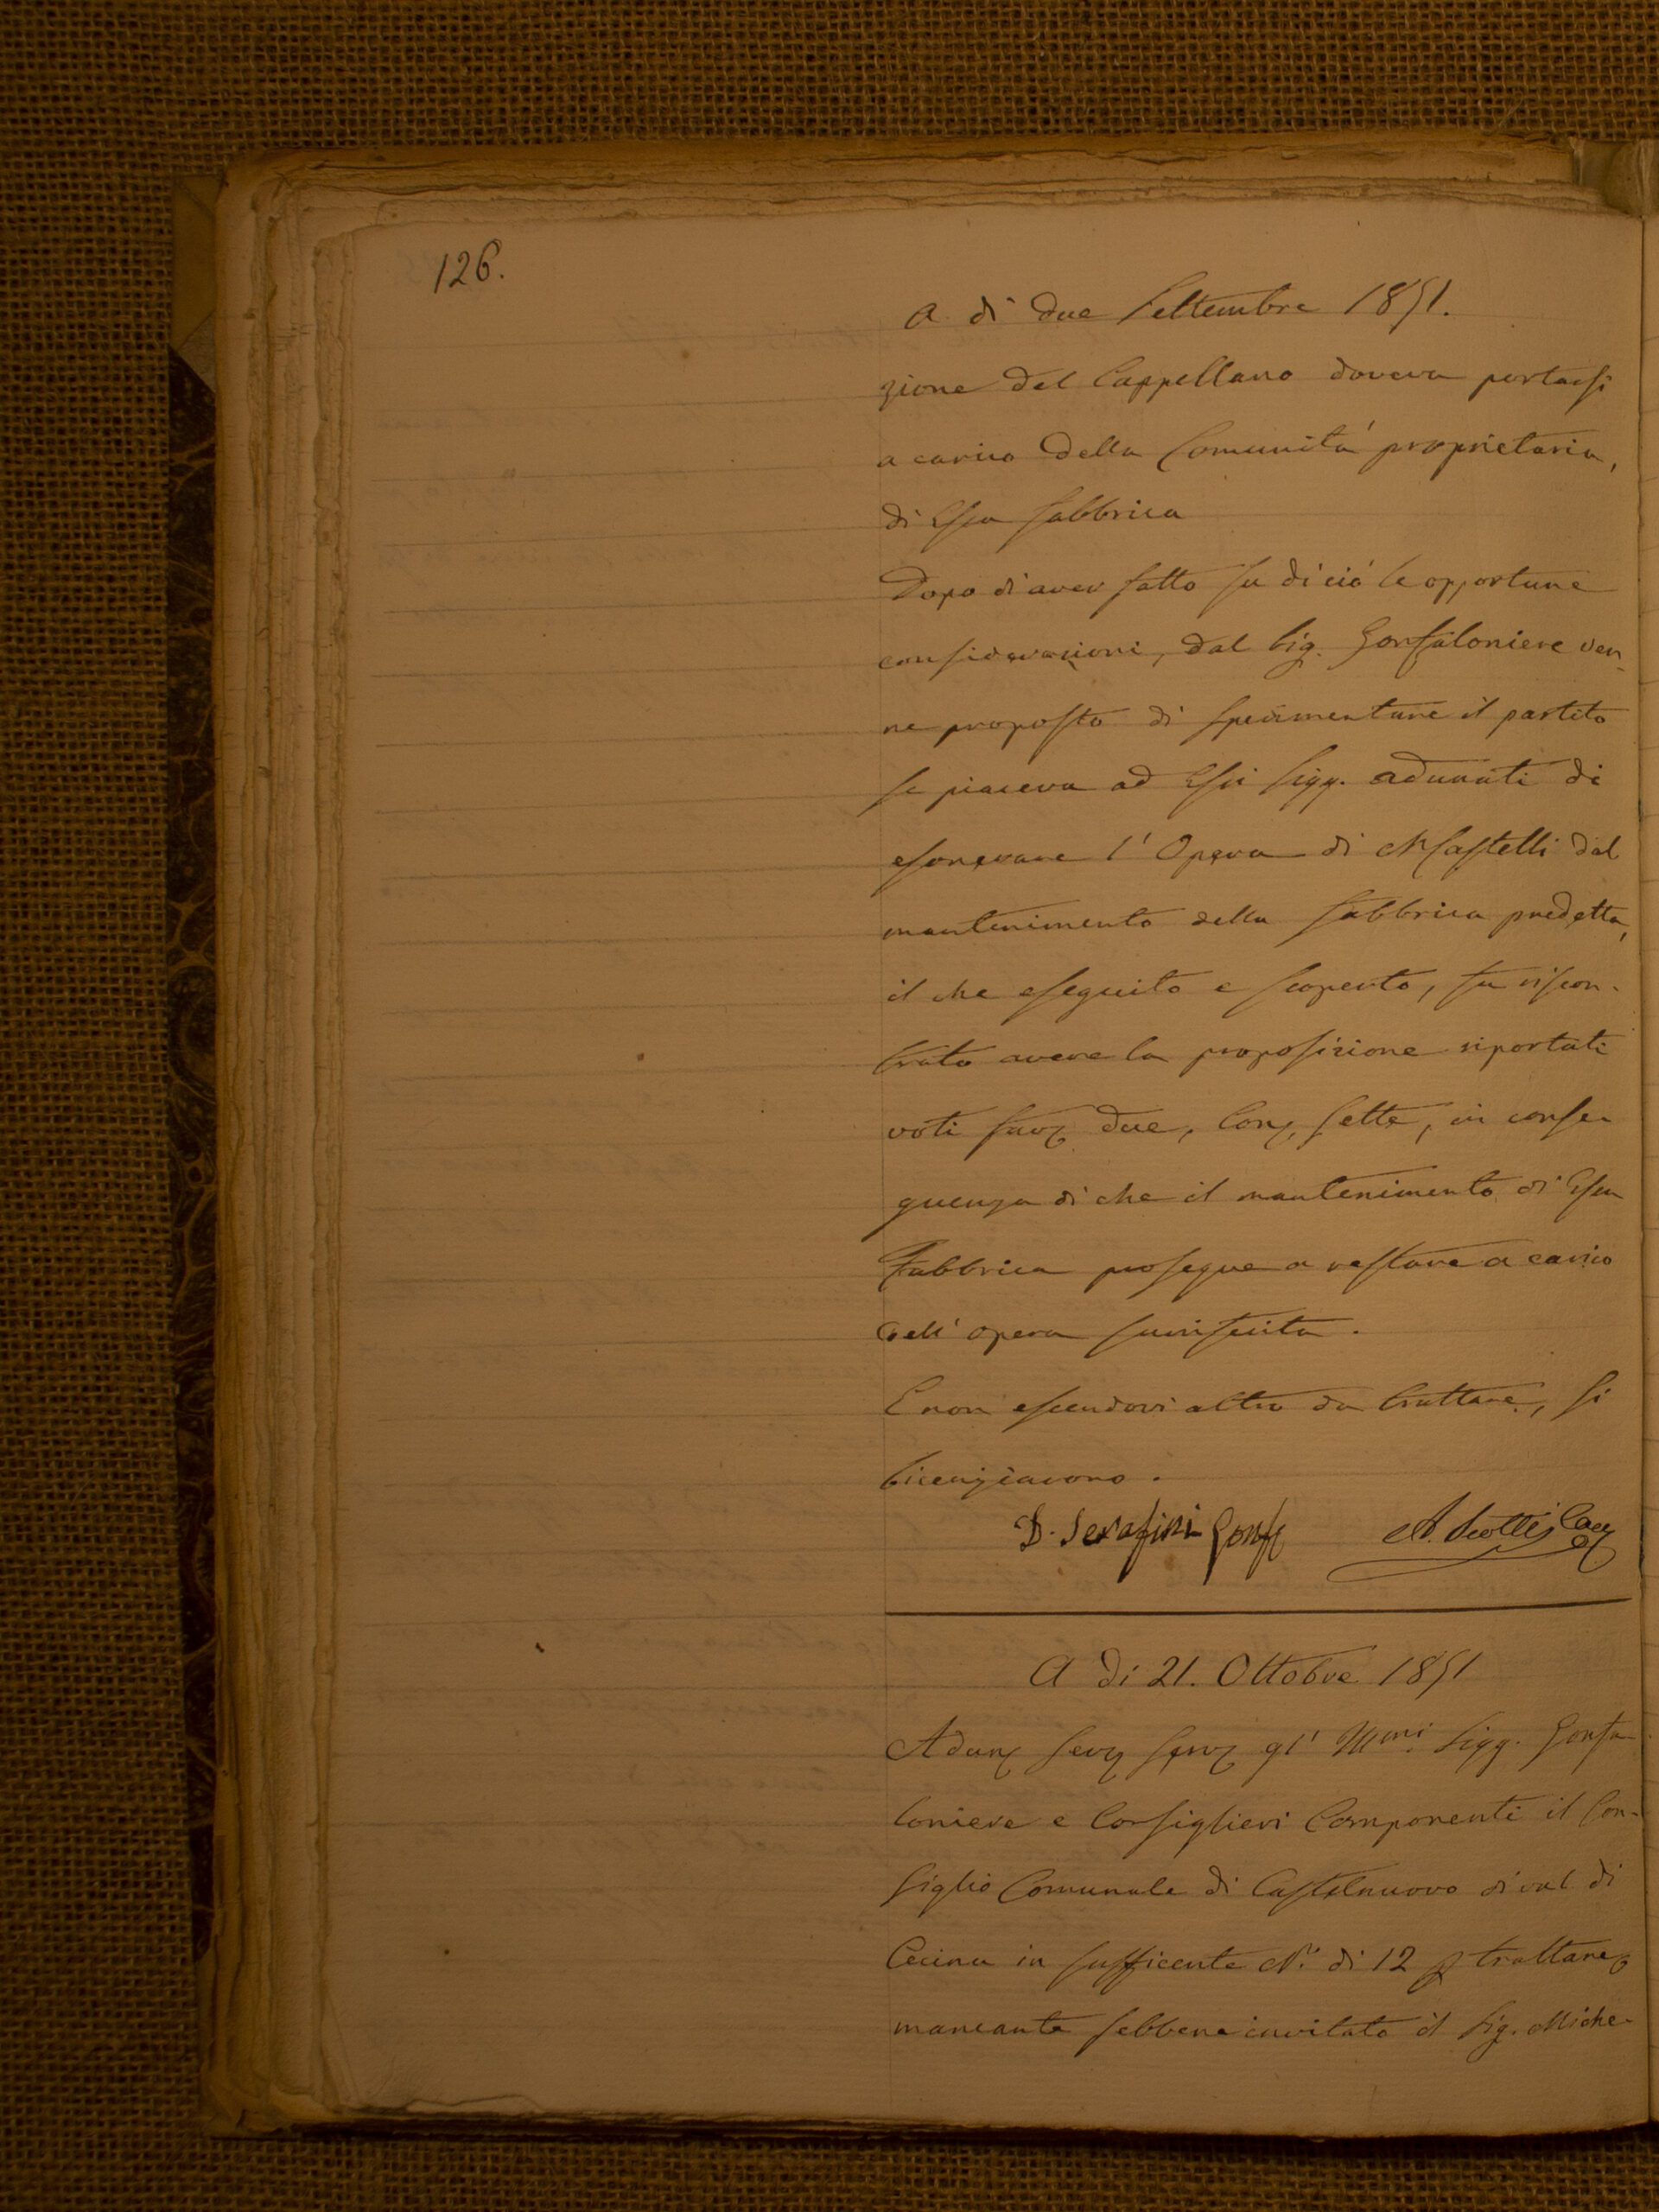 126.
A di due Settembre 1851.
zione del Cappellano doveva portarsi
a carico della Comunità proprietaria,
di Essa fabbrica
Dopo di aver fatto su di ciò le opportune
considerazioni, dal Sig. Gonfaloniere ven-
ne proposto di sperimentare il partito
se piaceva ad Essi Sigg. adunati di
esonerare l'Opera di Castelli dal
mantenimento della fabbrica predetta,
il che eseguito e scoperto, fu riscon-
trato avere la proposizione riportati
voti favz due, Conz, sette, in conse-
guenza di che il mantenimento di Essa
Fabbrica prosegue a restare a carico
dell'opera surriferita.
E non essendovi altro da trattare, si
licenziarono.
D. Serafini Gonfz A. Scotti Canz
A di 21. Ottobre 1851
Adunz Servz Servz gl' Illmi Sigg. Gonfa-
loniere e Consiglieri Componenti il Con-
siglio Comunale di Castelnuovo di val di
Cecina in sufficente N.° di 12 p trattare
mancante sebbene invitato il Sig. Miche-